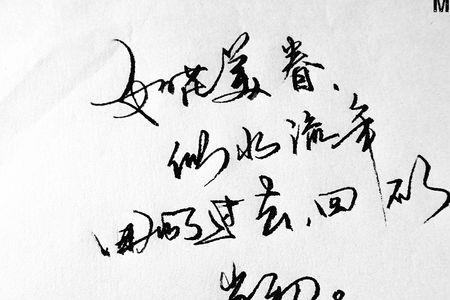 M
如花美眷、
似水流年
回得过去、回不
当初。